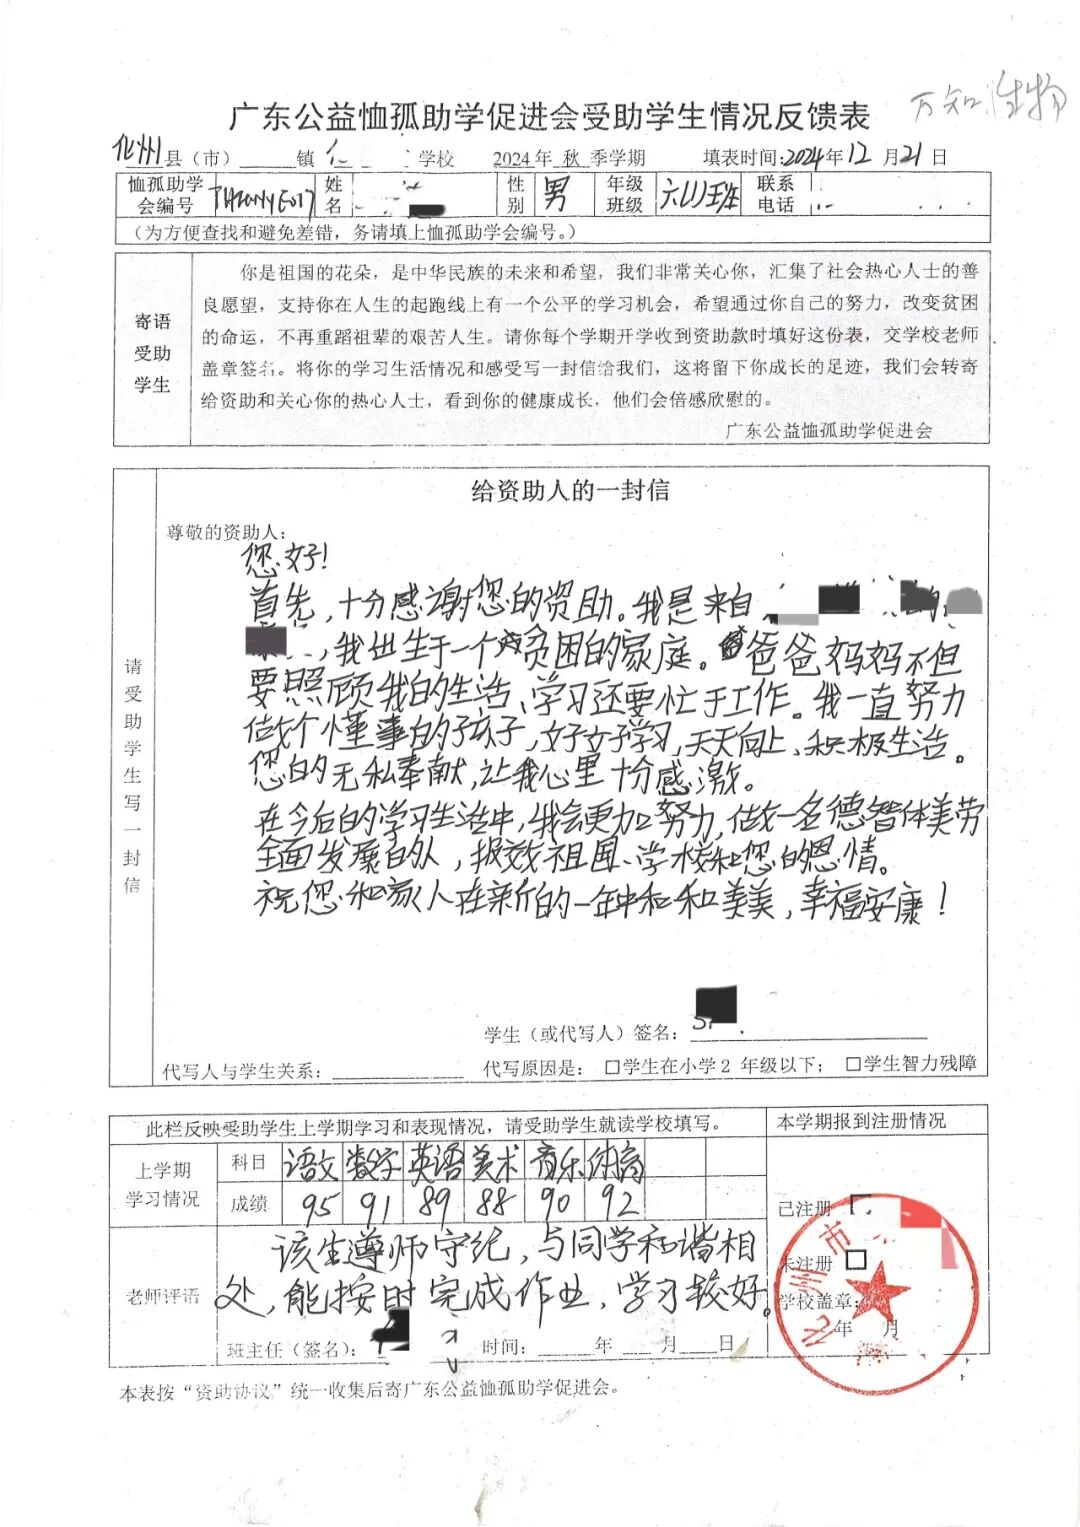 万知生物
广东公益恤孤助学促进会受助学生情况反馈表
化州县（市）______镇 学校 2024年 秋 季学期 填表时间:2024年12月21日
恤孤助学会编号 姓名 性别 男 年级班级 六(1)班 联系电话
（为方便查找和避免差错，务请填上恤孤助学会编号。）
寄语受助学生
你是祖国的花朵，是中华民族的未来和希望，我们非常关心你，汇集了社会热心人士的善
良愿望，支持你在人生的起跑线上有一个公平的学习机会，希望通过你自己的努力，改变贫困
的命运，不再重蹈祖辈的艰苦人生。请你每个学期开学收到资助款时填好这份表，交学校老师
盖章签名。将你的学习生活情况和感受写一封信给我们，这将留下你成长的足迹，我们会转寄
给资助和关心你的热心人士，看到你的健康成长，他们会倍感欣慰的。
广东公益恤孤助学促进会
请受助学生写一封信
给资助人的一封信
尊敬的资助人：
您好！
首先，十分感谢您的资助。我是来自
，我出生于一个贫困的家庭。爸爸妈妈不但
要照顾我的生活、学习还要忙于工作。我一直努力
做个懂事的孩子，好好学习，天天向上、积极生活。
您的无私奉献，让我心里十分感激。
在今后的学习生活中，我会更加努力，做一名德智体美劳
全面发展的人，报效祖国、学校和您的恩情。
祝您和家人在新的一年中和和美美，幸福安康！
学生（或代写人）签名：
代写人与学生关系：__________ 代写原因是：□学生在小学2 年级以下；□学生智力残障
此栏反映受助学生上学期学习和表现情况，请受助学生就读学校填写。 本学期报到注册情况
上学期学习情况
科目 语文 数学 英语 美术 音乐 体育
成绩 95 91 89 88 90 92
已注册
未注册 □
学校盖章：
年 月
老师评语
该生尊师守纪，与同学和谐相
处，能按时完成作业，学习较好。
班主任（签名）： 时间：______年____月____日
化州市
本表按“资助协议”统一收集后寄广东公益恤孤助学促进会。